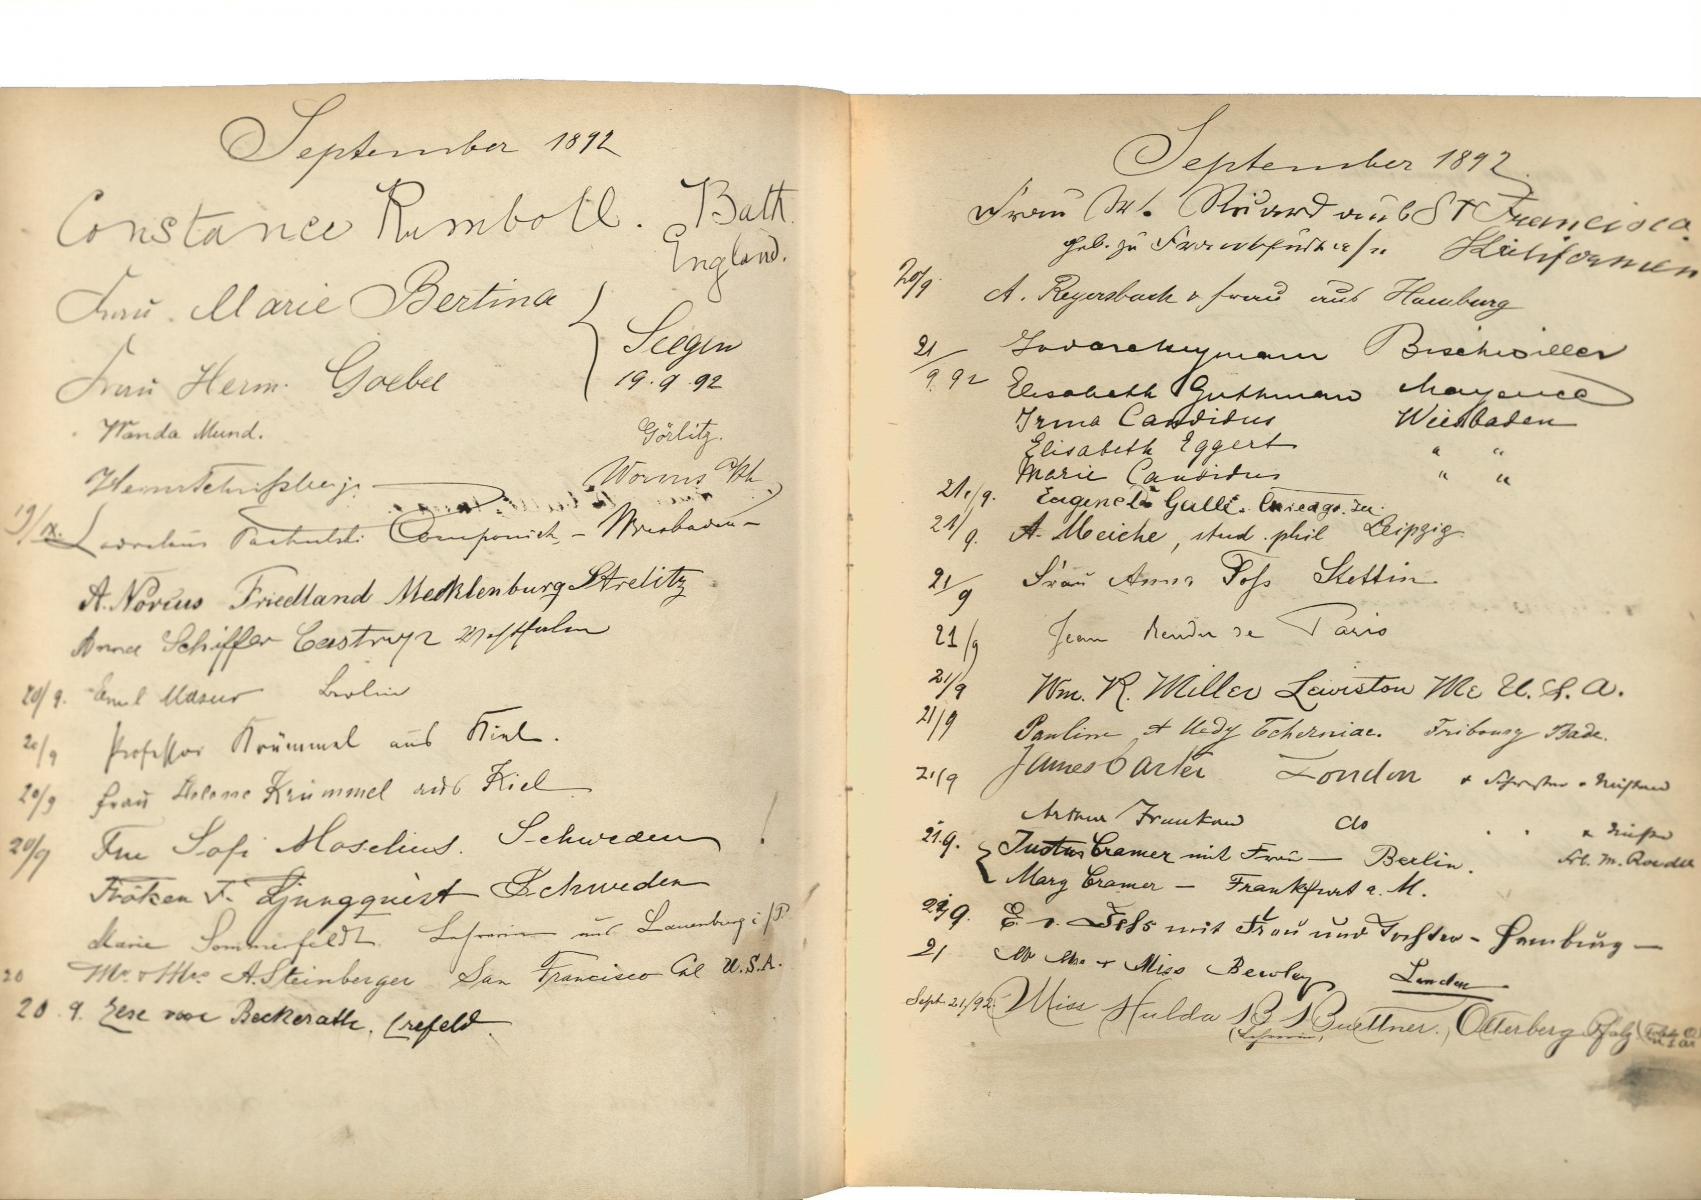 September 1892
Constance Rumboll. Bath.
England.
Frau Marie Bertina
Siegen
Frau Herm. Goebel
19.9.92
Wanda Mund. Görlitz.
Worms a/Rh
19/IX. Componist, - Wiesbaden -
A. Norius Friedland Mecklenburg Strelitz
Anna Schiffer Castrop Westfalen
20/9. Emil Masur Berlin
20/9 Professor Krümmel aus Kiel.
20/9 Frau Helene Krümmel aus Kiel
20/9 Fru Sofi Moselius. Schweden
Fröken F. Ljungquist Schweden
Marie Sommerfeldt. Lehrerin aus Lauenburg i/P.
20 Mr. & Mrs A. Steinberger San Francisco Cal U.S.A.
20.9. von Beckerath, Crefeld.
September 1892
Frau aus St Francisco.
geb. zu Frankfurt a/M Kalifornien
20/9. A. Reyersbach & Frau aus Hamburg
21/9.92 Bischwiller
Elisabeth Guthmann Mayence
Irma Candidus Wiesbaden
Elisabeth Eggert " "
Marie Candidus " "
21./9. Galle. Chicago. Ill.
21/9. A. Meiche, stud. phil Leipzig
21/9 Frau Anna Foss Stettin
21/9 Jean de Paris
21/9 Wm. R. Miller Lewiston Me U.S.A.
21/9 Pauline & Hedy Tcherniac. Fribourg Bade.
21/9 James Carter London
Arthur Frankau do " "
Frl. M. Roeder
21.9. Justus Cramer mit Frau — Berlin.
Mary Cramer — Frankfurt a. M.
21/9. E. v. mit Frau und Tochter - Hamburg —
21 Mr Mrs & Miss Bewley London
Sept. 21./92. Miss Hulda B. Buettner., Otterberg Pfalz
(Lehrerin)